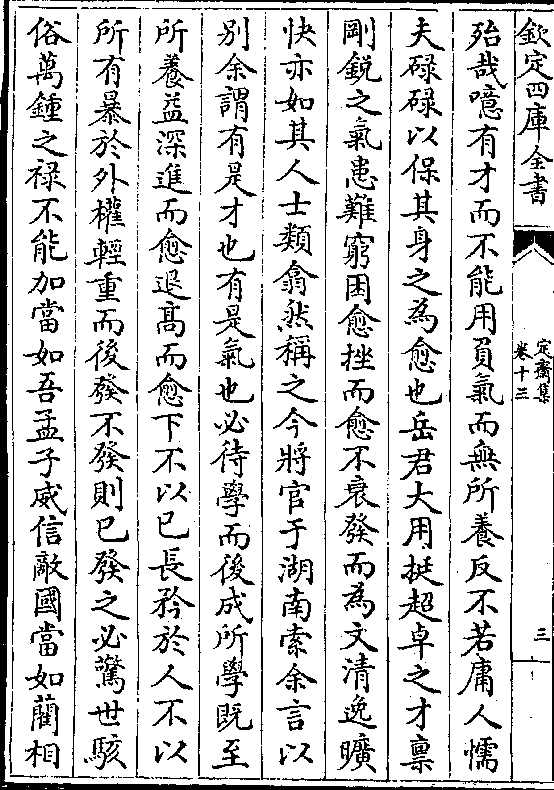 欽定四庫全書
定齋集
卷十三
三
殆哉噫有才而不能用負氣而無所養反不若庸人懦
夫碌碌以保其身之為愈也岳君大用挺超卓之才禀
剛銳之氣患難窮困愈挫而愈不衰發而為文清逸曠
快亦如其人士類翕然稱之今將官于湖南索余言以
别余謂有是才也有是氣也必待學而後成所學既至
所養益深進而愈退髙而愈下不以已長矜於人不以
所有暴於外權輕重而後發不發則已發之必驚世駭
俗萬鍾之祿不能加當如吾孟子威信敵國當如藺相